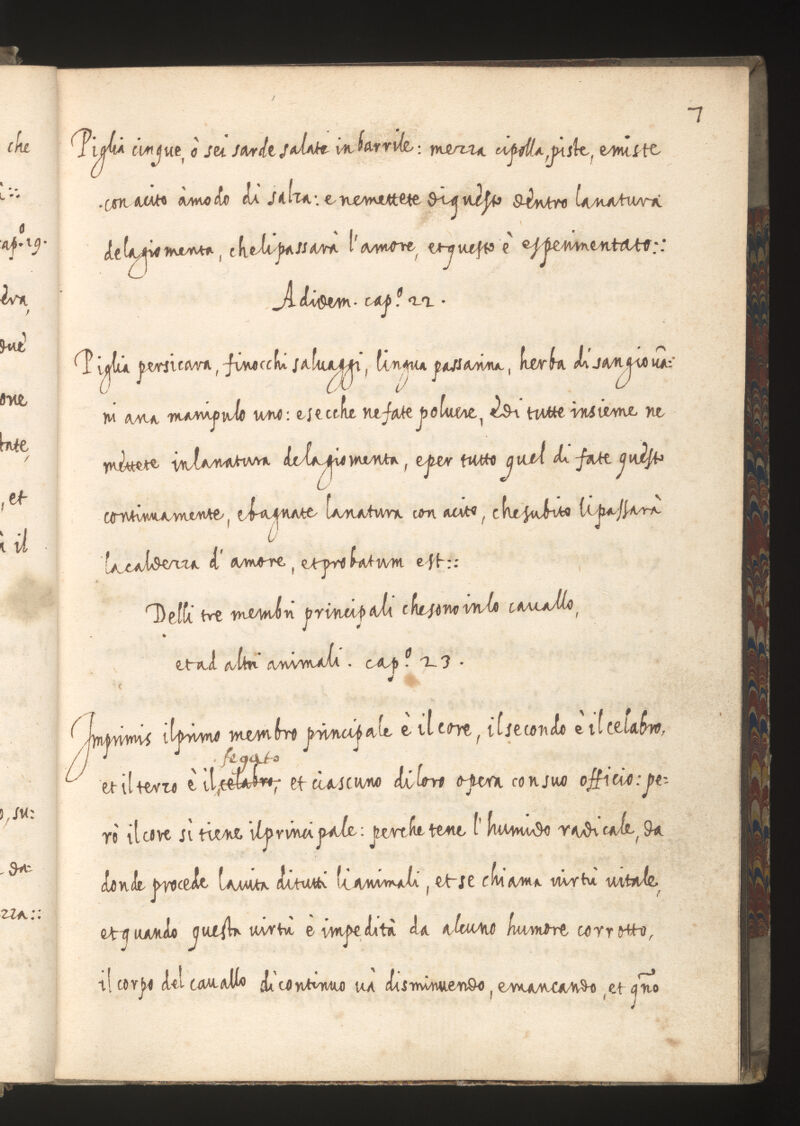 7
Piglia cinque, ò sei sarde salate in barrile: mezza cipolla, piste, e miste
con acito à modo di salza: e nemettete di questo dentro la natura
dela giomenta, che li passarà l'amore, et questo è esperimentato::
Ad idem. cap.º 22.
Piglia persicara, finocchi saluaggi, lingua passarina, herba di san gioua:
ni ana manipulo uno: e secche ne fate poluere, & di tutte insieme ne
mettete in la natura de la giomenta, e per tutto quel di fate questo
continuamente, e bagnate la natura con acito, che subito li passarà
la caldezza d'amore, et probatum est::
Delli tre membri principali che sono in lo cauallo,
et ad altri animali. cap.º 23.
Imprimis il primo membro principale è il core, il secondo è il celabro,
fegato
et il terzo è il celabro, et ciascuno di loro opera con suo officio: pe:
rò il core si tiene il principale: perche tene l'humido radicale, da
donde procede la uita di tutti li animali, et se chiama uirtù uitale,
et quando questa uirtù è impedità da alcuno humore corrotto,
il corpo del cauallo di continuo uà disminuendo, e mancando, et qno
che
cap.º 19.
one
tate,
, et
à il
o, su:
da:
zza::